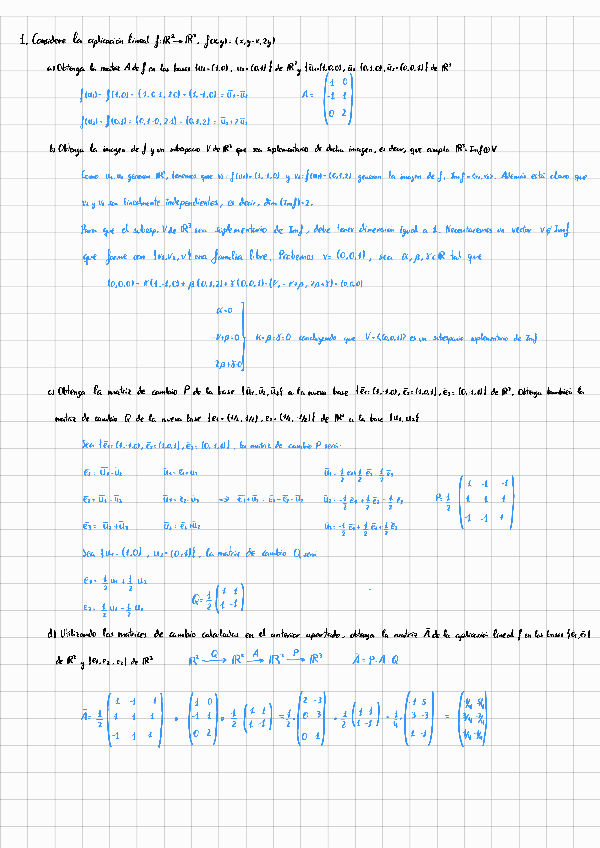 1. Considere la aplicación lineal f: ℝ² → ℝ³, f(x,y) = (x, y-x, 2y)
a) Obtenga la matriz A de f en las bases {u₁=(1,0), u₂=(0,1)} de ℝ² y {ū₁=(1,0,0), ū₂=(0,1,0), ū₃=(0,0,1)} de ℝ³
f(u₁) = f(1,0) = (1, 0-1, 2·0) = (1,-1,0) = ū₁-ū₂ A = (1 0 / -1 1 / 0 2)
f(u₂) = f(0,1) = (0, 1-0, 2·1) = (0,1,2) = ū₂+2ū₃
b) Obtenga la imagen de f y un subespacio V de ℝ³ que sea suplementario de dicha imagen, es decir, que cumpla ℝ³ = Imf ⊕ V
Como u₁, u₂ generan ℝ², tenemos que v₁ = f(u₁) = (1,-1,0) y v₂ = f(u₂) = (0,1,2) generan la imagen de f, Imf = <v₁,v₂>. Además está claro que
v₁ y v₂ son linealmente independientes, es decir, dim(Imf)=2.
Para que el subesp. V de ℝ³ sea suplementario de Imf, debe tener dimensión igual a 1. Necesitaremos un vector v ∉ Imf
que forme con {v₁,v₂,v} una familia libre. Probemos v = (0,0,1), sea α, β, γ ∈ ℝ tal que
(0,0,0) = α(1,-1,0) + β(0,1,2) + γ(0,0,1) = (α, -α+β, 2β+γ) = (0,0,0)
α=0
-α+β=0 α=β=γ=0 concluyendo que V = <(0,0,1)> es un subespacio suplementario de Imf
2β+γ=0
c) Obtenga la matriz de cambio P de la base {ū₁, ū₂, ū₃} a la nueva base {ē₁=(1,-1,0), ē₂=(1,0,1), ē₃=(0,1,1)} de ℝ³. Obtenga también la
matriz de cambio Q de la nueva base {e₁=(1/2, 1/2), e₂=(1/2, -1/2)} de ℝ² a la base {u₁,u₂}
Sea {ē₁=(1,-1,0), ē₂=(1,0,1), ē₃=(0,1,1)}, la matriz de cambio P será:
Sea {u₁=(1,0), u₂=(0,1)}, la matriz de cambio Q será
e₁ = 1/2 u₁ + 1/2 u₂
e₂ = 1/2 u₁ - 1/2 u₂ Q = 1/2 (1 1 / 1 -1)
d) Utilizando las matrices de cambio calculadas en el anterior apartado, obtenga la matriz Ā de la aplicación lineal f en las bases {e₁,e₂}
de ℝ² y {ē₁, ē₂, ē₃} de ℝ³ ℝ² →Q ℝ² →A ℝ³ →P ℝ³ Ā = P·A·Q